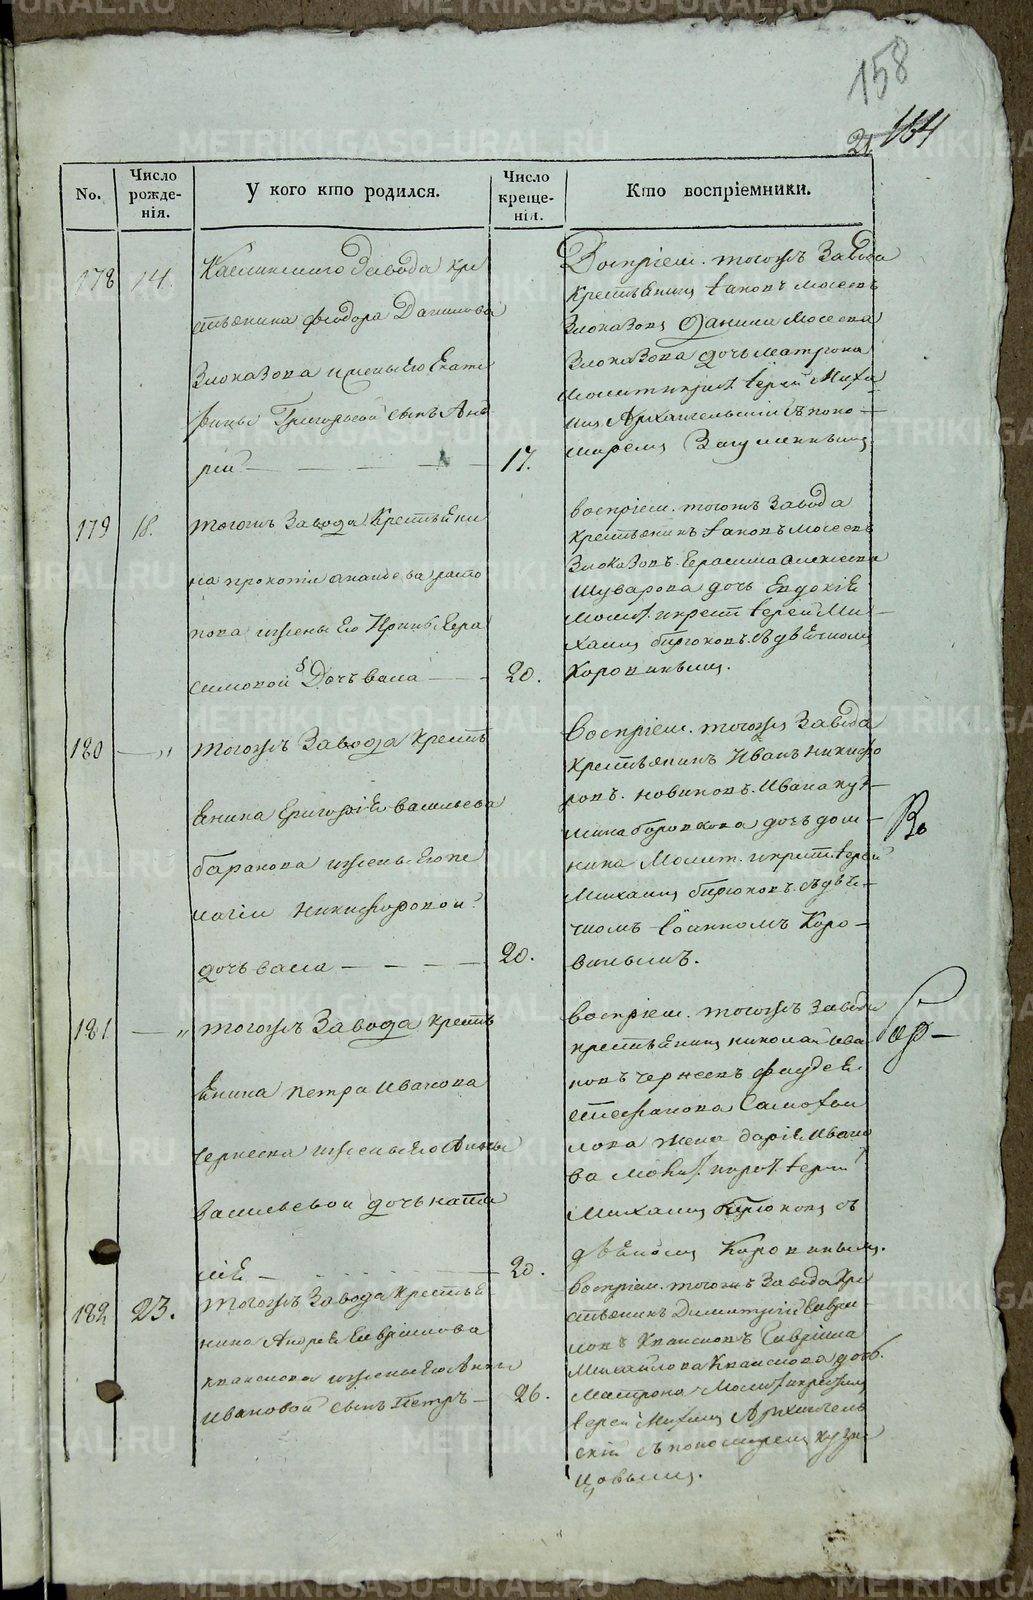 158
21. 164
No.
Число рожде-нія.
У кого кто родился.
Число креще-нія.
Кто воспріемники.
178
14.
Каслинскаго Завода кре
стьянина Феодора Данилова
Злоказова и жены Его Екате
рины Григорьевой сынъ Анд
рей
17.
Воспріем. тогожъ Завода
крестьянинъ Іаковъ Мосеевъ
Злоказовъ Данила Мосеева
Злоказова дочь Матрона
Молит. и крест. Іерей Миха
илъ Архангельскій съ поно-
маремъ
179
18.
тогожъ Завода Крестьяни
на
пова и жены Его Ирины Гера
симовой дочь Васа
20.
воспріем. тогожъ Завода
крестьянинъ Іаковъ Мосеевъ
Злоказовъ. Герасима Алексеева
Шуварова дочь Евдокія
Молит. и крест Іерей Ми-
хаилъ Бирюковъ. съ дьячкомъ
Коровинымъ.
180
— „
тогожъ Завода Кресть
янина Григорія Васильева
Баранова и жены Его Пе
лагіи Никифоровой
дочь Васа
20.
Воспріем. тогожъ Завода
крестьянинъ Иванъ Никифо
ровъ. Новиковъ. Ивана Куз-
мина дочь Дом-
ника Молит. и крест. Іерей
Михаилъ Бирюковъ. съ дья-
чкомъ Іоанномъ Коро-
винымъ.
181
— „
тогожъ Завода кресть
янина Петра Иванова
и жены Его Анны
Васильевой дочь Ната
лія
20.
Воспріем. тогожъ Завода
крестьянинъ Николай Ива
новъ Фадея
Стефанова Самойлова
жена Дарія Ивано
ва Молит. и крест. Іерей
Михаилъ Бирюковъ съ
дьячкомъ Коровинымъ.
182
23.
тогожъ Завода Крестья
нина Андрея Гаврилова
и жены Его Анны
Ивановой сынъ Петръ
26.
Воспріем. тогожъ Завода Кре
стьянинъ Димитрій Гаври
ловъ Гаврила
Михайлова дочь
Матрона Молит. и крестилъ
Іерей Михаилъ Архангель
скій съ пономаремъ Кузне
цовымъ.
METRIKI.GASO-URAL.RU